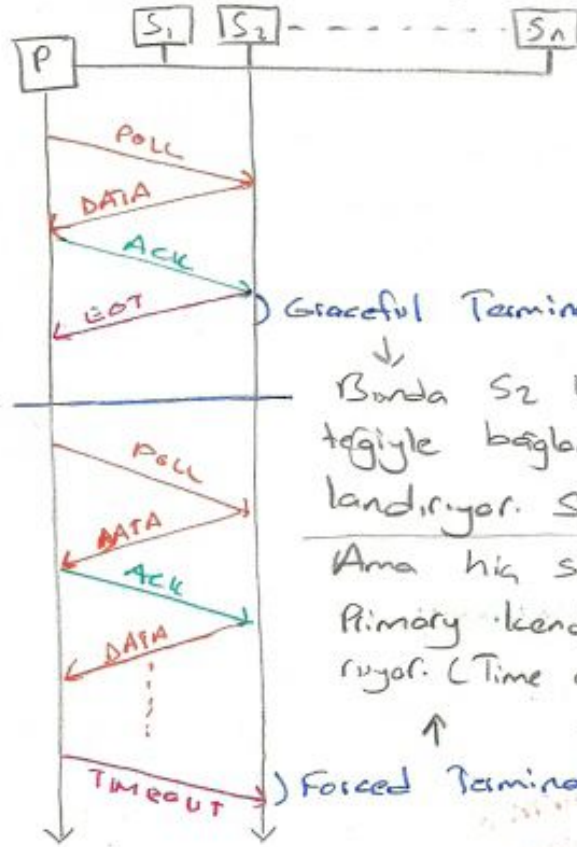 P S1 S2 Sn
POLL
DATA
ACK
EOT
) Graceful Termin
Bunda S2
teğiyle bağla
landırıyor. S
POLL
DATA
ACK
DATA
Ama hiç s
Primary kend
rıyor. (Time
TIMEOUT
) Forced Termina